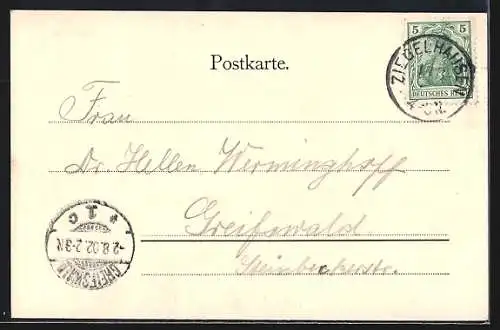 5 5
ZIEGELHAUSEN
DEUTSCHES REICH
Postkarte.
Frau
Dr. Hellen Werminghoff
Greifswald
Steinbeckerstr.
* 1 c
-2.8.02.2-3N.
GREIFSWALD